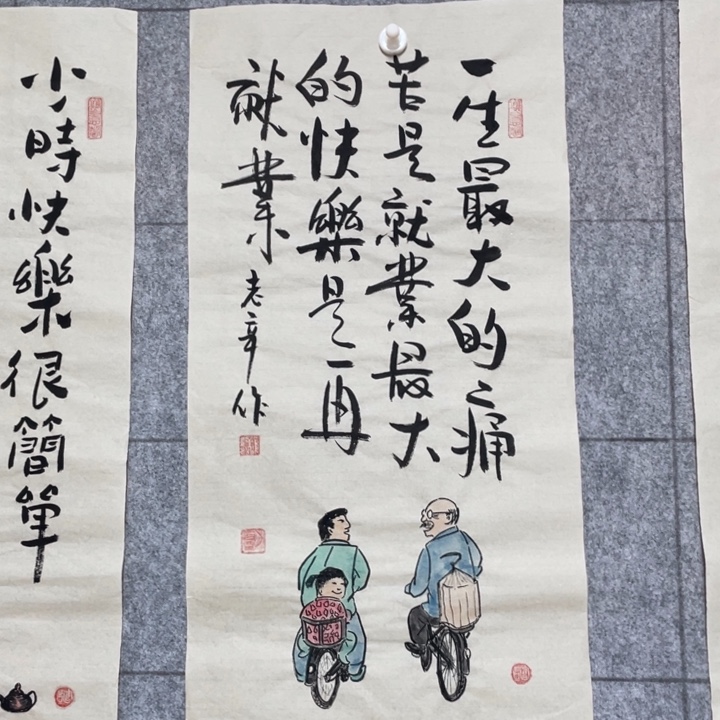 一生最大的痛
苦是就業最大
的快樂是一再
就業
老辛作
小時快樂很簡單